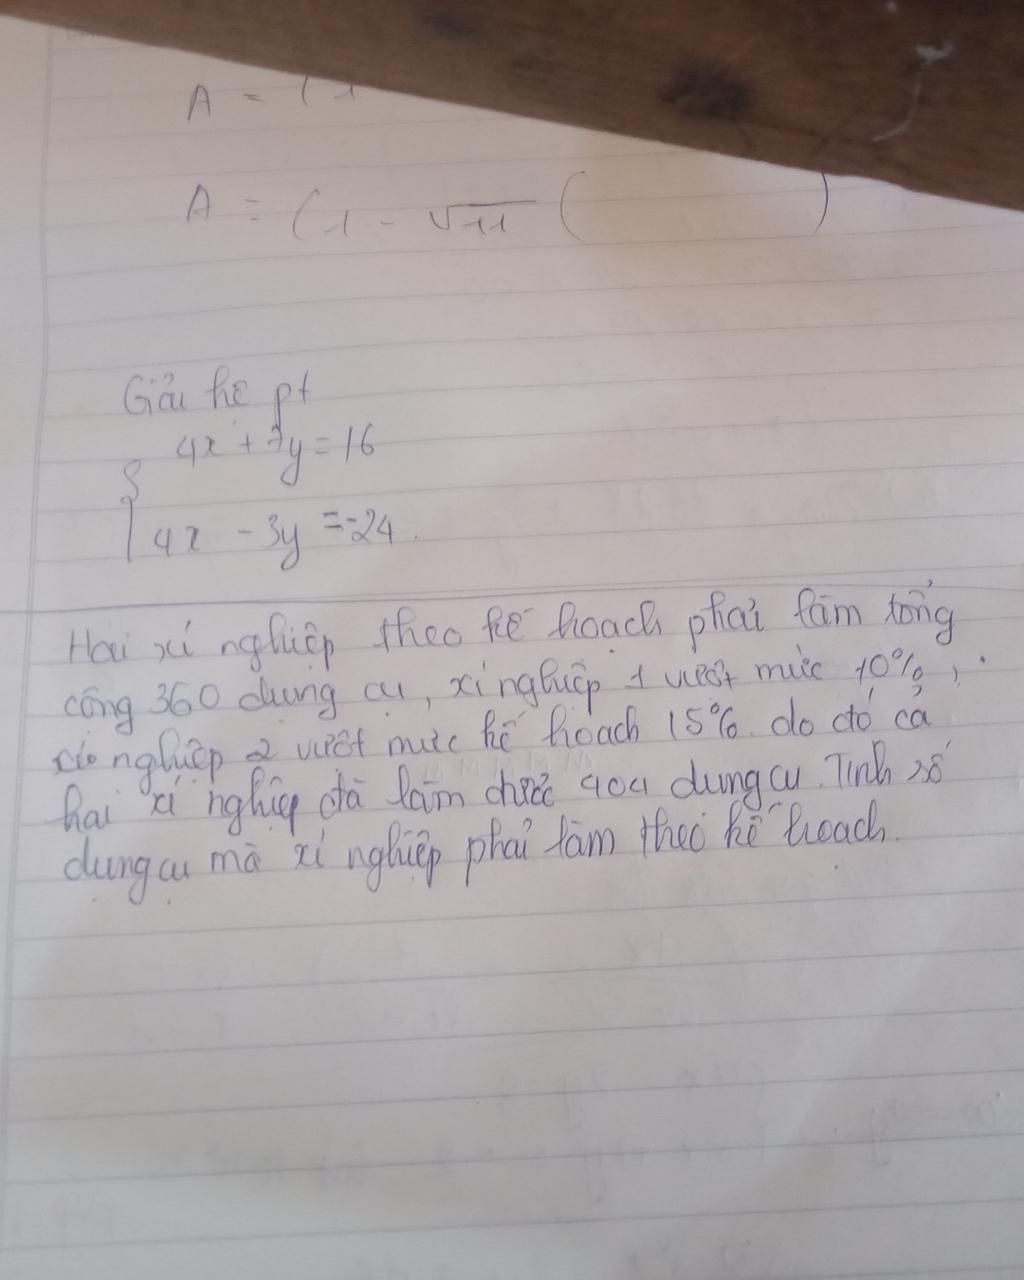 A = (1
A = (1 - √11 ( )
Giải hệ pt
4x + 7y = 16
4x - 3y = -24.
Hai xí nghiệp theo kế hoạch phải làm tổng
công 360 dung cụ, xí nghiệp 1 vượt mức 10%,
xí nghiệp 2 vượt mức kế hoạch 15% do đó cả
hai xí nghiệp đã làm được 404 dung cụ. Tính số
dụng cụ mà xí nghiệp phải làm theo kế hoạch.